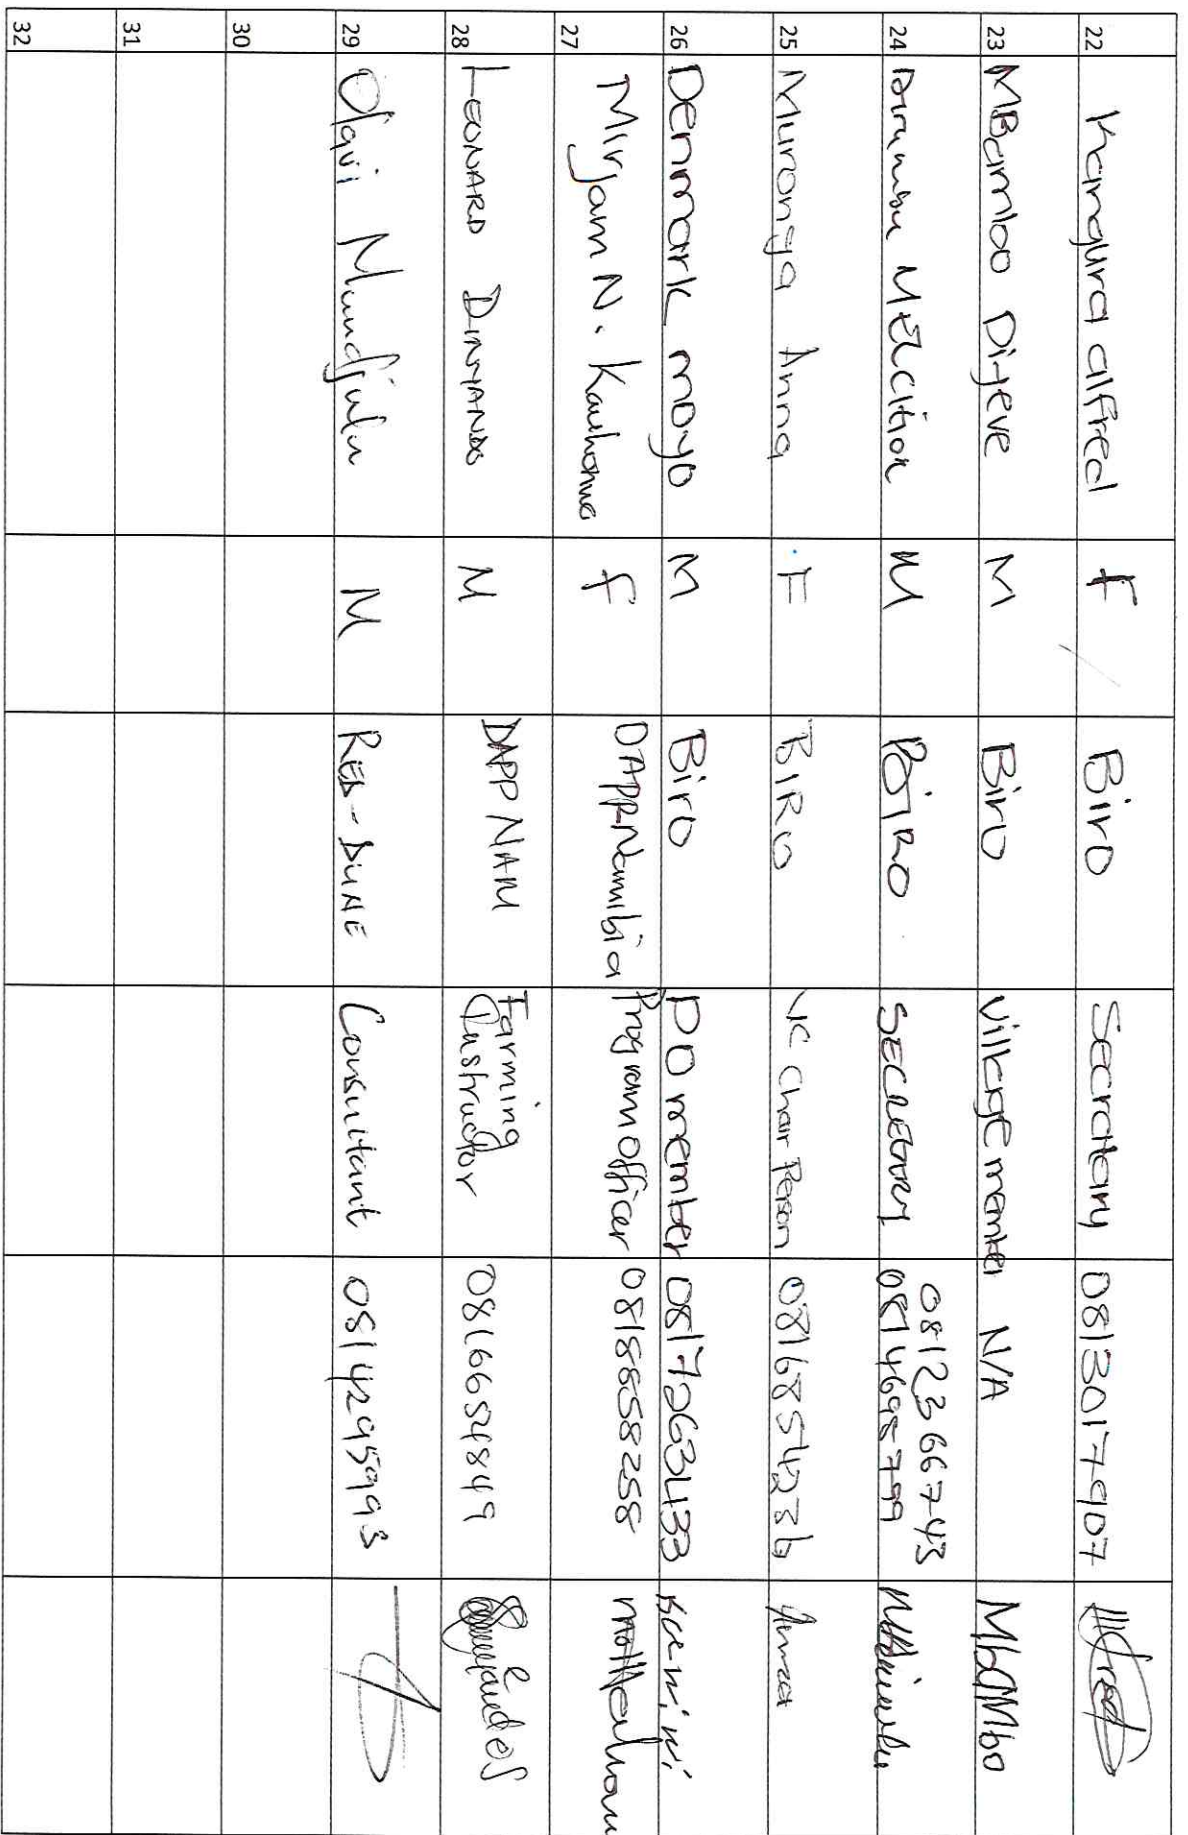 22 Kangura alfred F Biro Secretary 0813017907
23 MBamboo Diyeve M Biro village member N/A MbaMbo
24 M BIRO SECRETARY 0812366743 0814698799
25 Muronga Anna F BIRO VC Chair Person 0816854236 Anna
26 Denmark moyo M Biro PO member 0817263433
27 Mirjam N. Kauhona F DAPP Namibia Program officer 0818858258
28 LEONARD DINYANDO M DAPP NAM Farming Instructor 0816654849
29 Olavi Mundjulu M RED-DUNE Consultant 0814295993
30
31
32